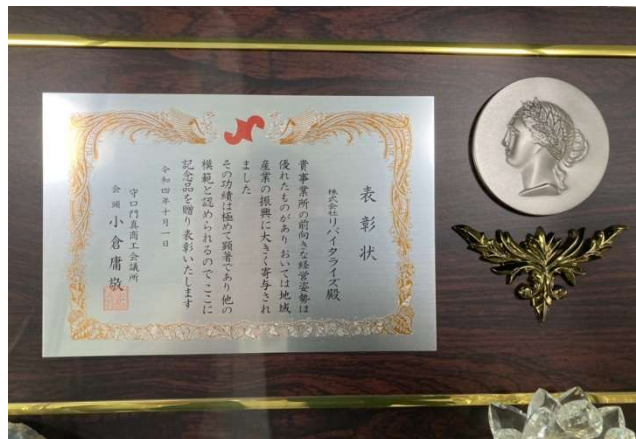 表彰状
株式会社リバイタライズ殿
貴事業所の前向きな経営姿勢は
優れたものがありおいては地域
産業の振興に大きく寄与され
ました
その功績は極めて顕著であり他の
模範と認められるのでここに
記念品を贈り表彰いたします
令和四年十月一日
守口門真商工会議所
会頭 小倉庸敬